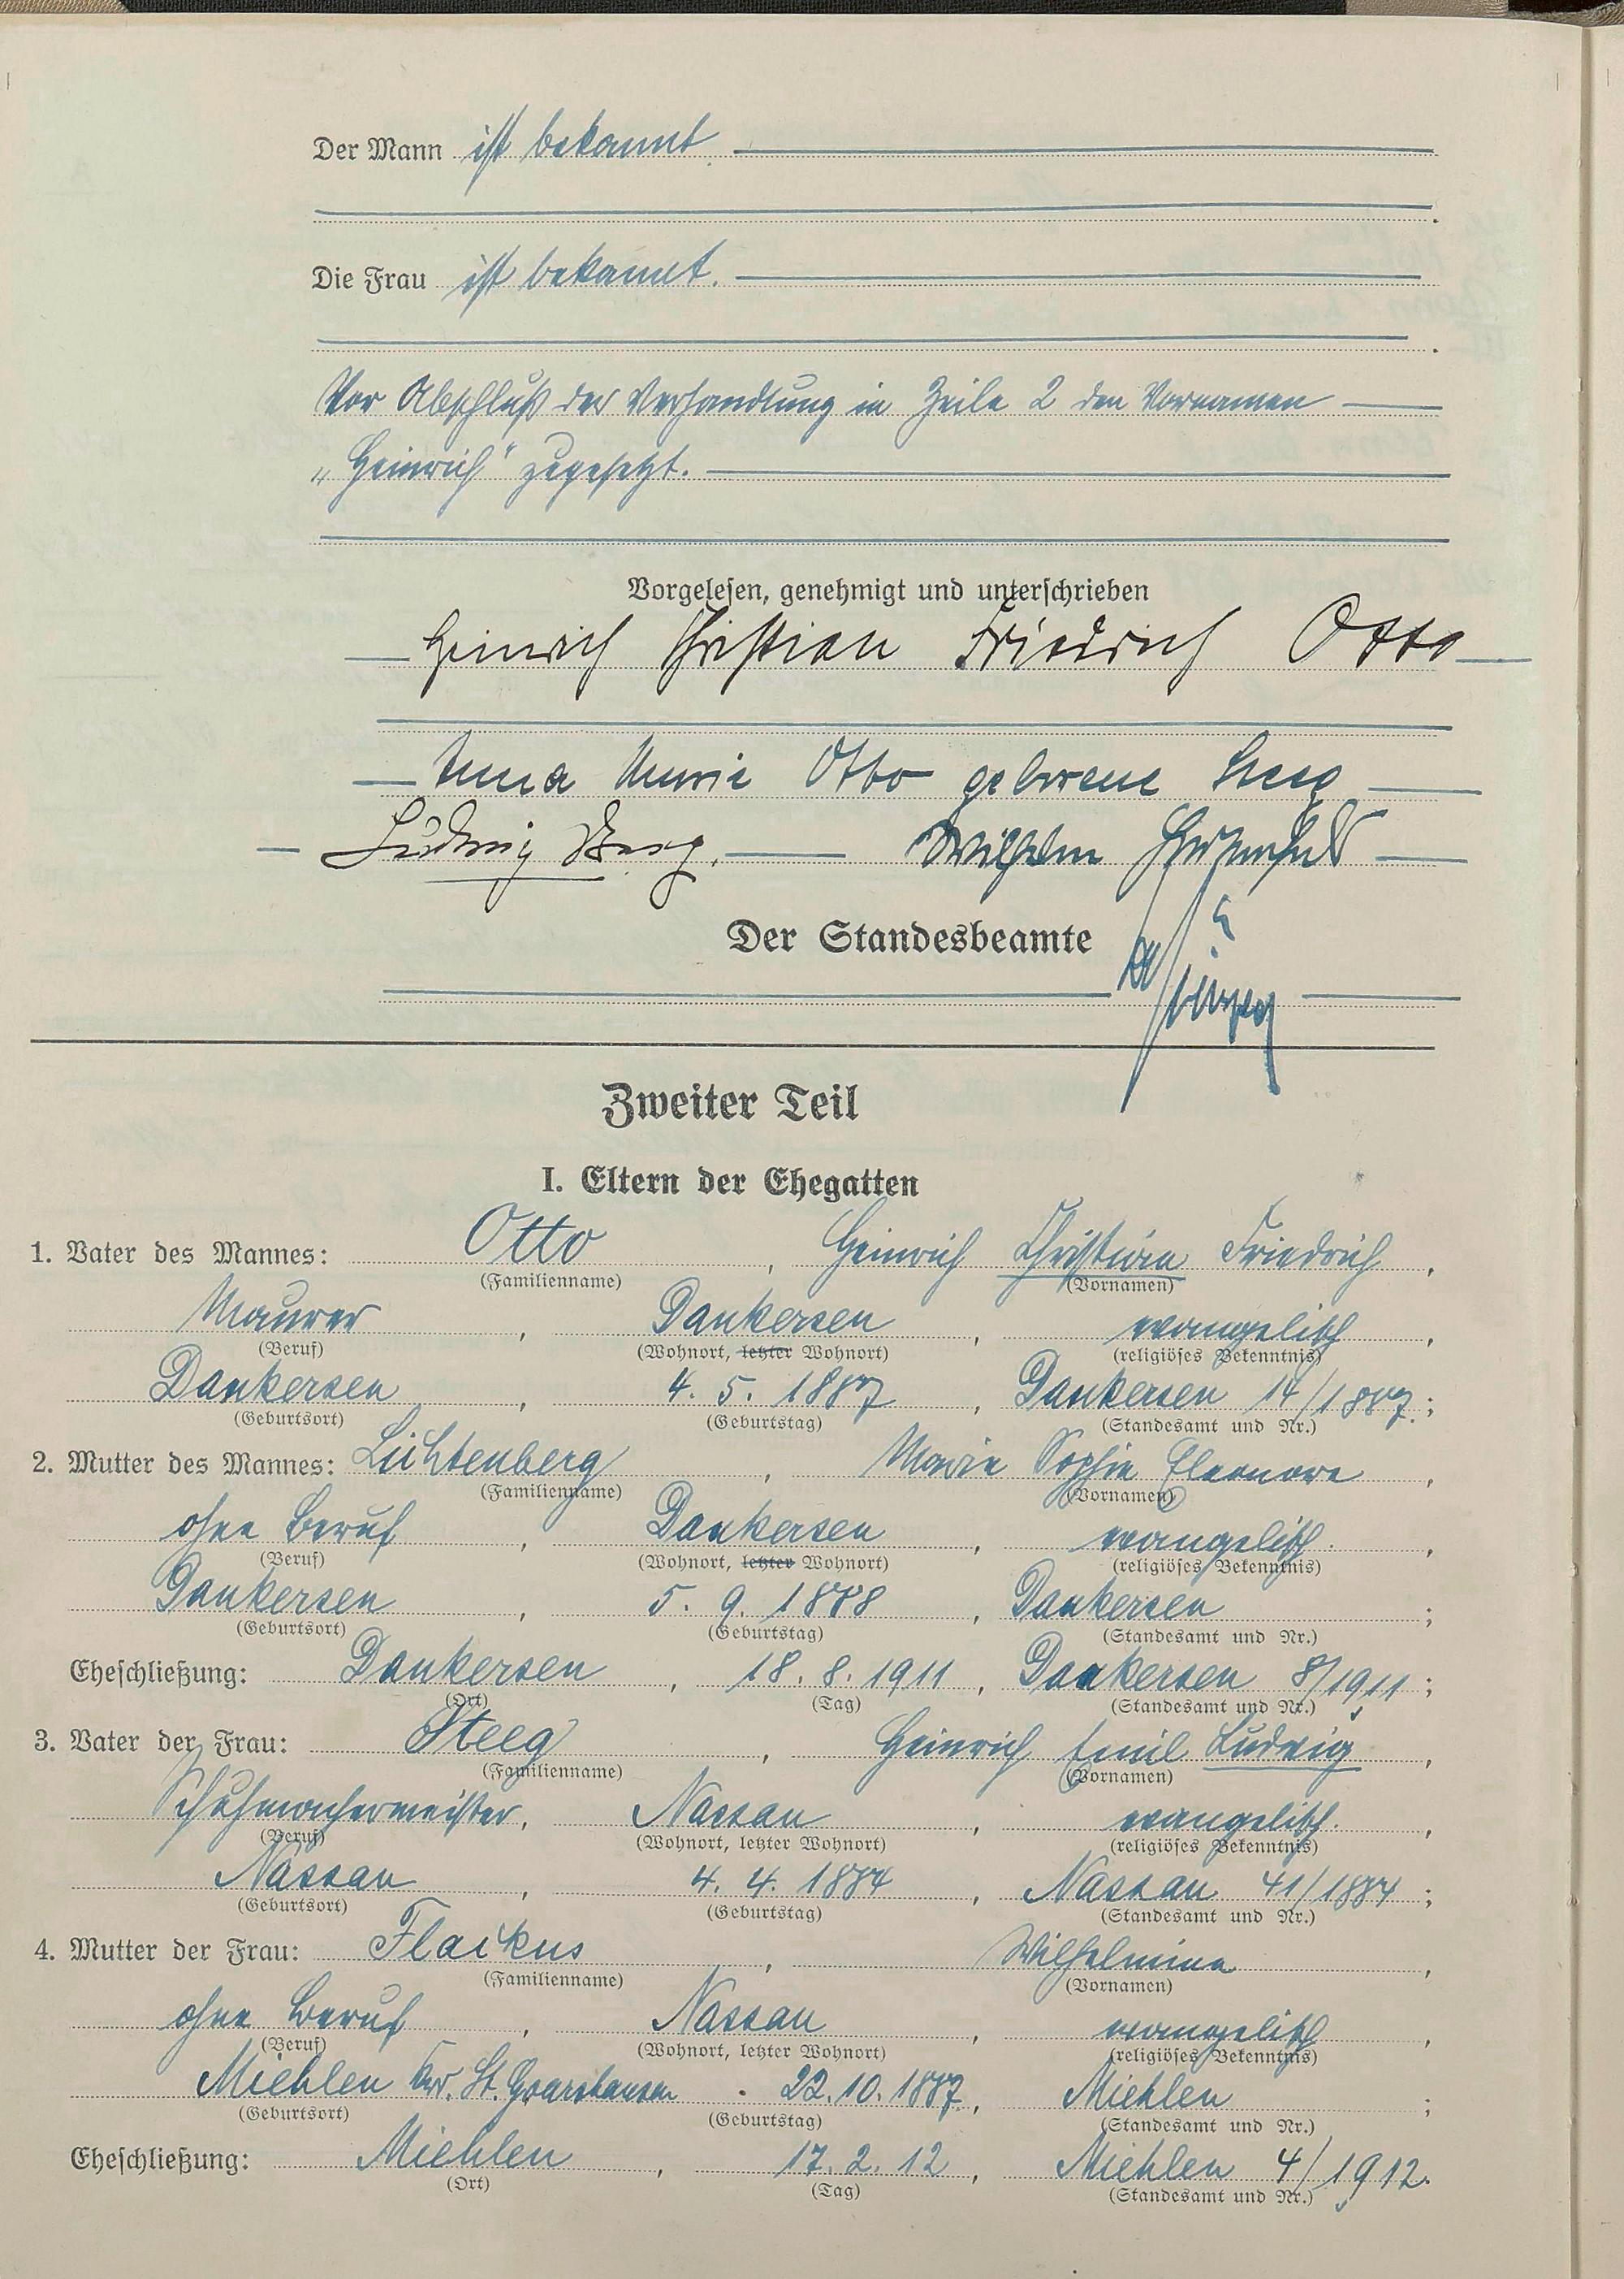 Der Mann ist bekannt.
Die Frau ist bekannt.
Vor Abschluß der Verhandlung in Zeile 2 den Vornamen
„Heinrich“ zugesetzt.
Vorgelesen, genehmigt und unterschrieben
Heinrich Christian Friedrich Otto
Anna Marie Otto geborene Steeg
Ludwig Steeg. Wilhelm
Der Standesbeamte
Zweiter Teil
I. Eltern der Ehegatten
1. Vater des Mannes: Otto, Heinrich Christian Friedrich,
(Familienname) (Vornamen)
Maurer, Dankersen, evangelisch,
(Beruf) (Wohnort, letzter Wohnort) (religiöses Bekenntnis)
Dankersen, 4. 5. 1887, Dankersen 14/1887.;
(Geburtsort) (Geburtstag) (Standesamt und Nr.)
2. Mutter des Mannes: Lichtenberg, Marie Sophie Eleonore,
(Familienname) (Vornamen)
ohne Beruf, Dankersen, evangelisch.,
(Beruf) (Wohnort, letzter Wohnort) (religiöses Bekenntnis)
Dankersen, 5. 9. 1888, Dankersen;
(Geburtsort) (Geburtstag) (Standesamt und Nr.)
Eheschließung: Dankersen, 18. 8. 1911, Dankersen 8/1911;
(Ort) (Tag) (Standesamt und Nr.)
3. Vater der Frau: Steeg, Heinrich Emil Ludwig,
(Familienname) (Vornamen)
Schuhmachermeister, Nassau, evangelisch.,
(Beruf) (Wohnort, letzter Wohnort) (religiöses Bekenntnis)
Nassau, 4. 4. 1884, Nassau 41/1884;
(Geburtsort) (Geburtstag) (Standesamt und Nr.)
4. Mutter der Frau: Flaikus, Wilhelmine,
(Familienname) (Vornamen)
ohne Beruf, Nassau, evangelisch,
(Beruf) (Wohnort, letzter Wohnort) (religiöses Bekenntnis)
Miehlen Krs. St. Goarshausen, 22. 10. 1887, Miehlen;
(Geburtsort) (Geburtstag) (Standesamt und Nr.)
Eheschließung: Miehlen, 17. 2. 12, Miehlen 4/1912.
(Ort) (Tag) (Standesamt und Nr.)